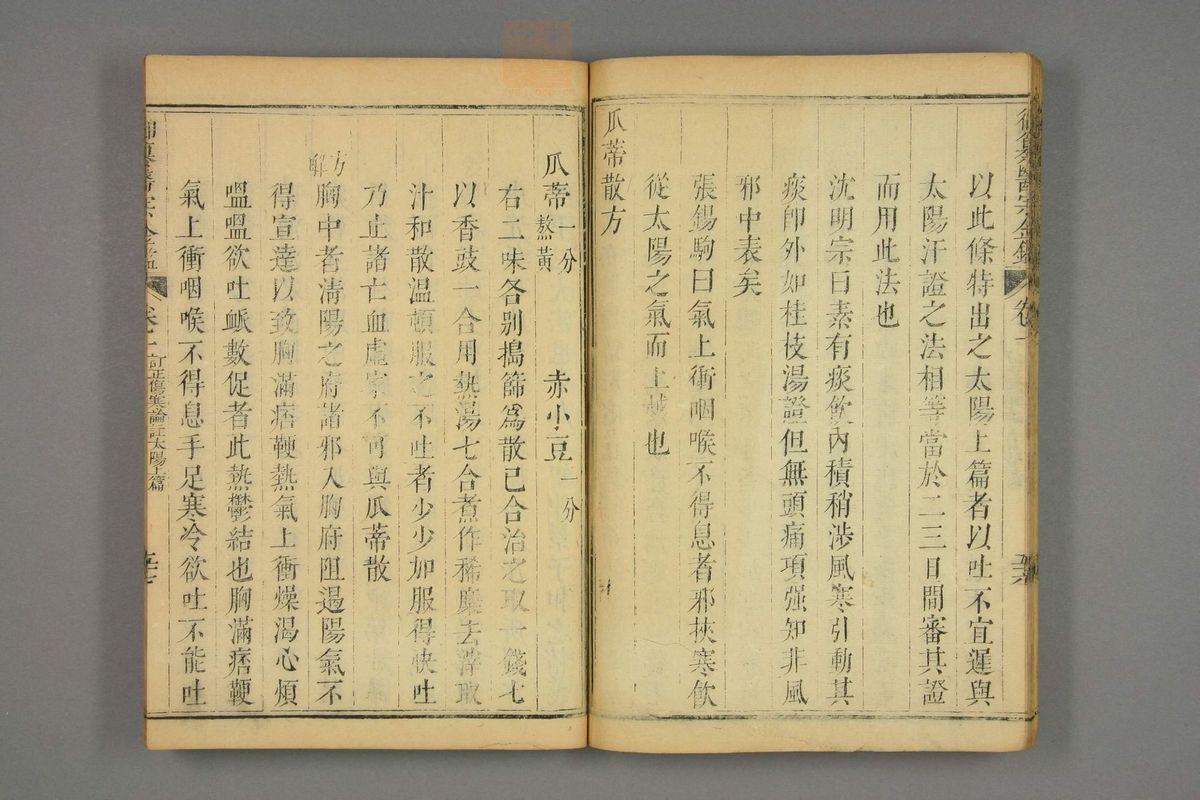 御纂醫宗金鑑 卷一 五六
以此條特出之太陽上篇者以吐不宜遲與
太陽汗證之法相等當於二三日間審其證
而用此法也
沈明宗曰素有痰飲內積稍涉風寒引動其
痰卽外如桂枝湯證但無頭痛項强知非風
邪中表矣
張錫駒曰氣上衝咽喉不得息者邪挾寒飲
從太陽之氣而上越也
瓜蒂散方
瓜蒂一分熬黃 赤小豆一分
右二味各别搗篩爲散已合治之取一錢七
以香豉一合用熱湯七合煮作稀糜去滓取
汁和散温頓服之不吐者少少加服得快吐
乃止諸亡血虛家不可與瓜蒂散
方解
胸中者淸陽之府諸邪入胸府阻遏陽氣不
得宣達以致胸滿痞鞕熱氣上衝燥渴心煩
嗢嗢欲吐脈數促者此熱鬱結也胸滿痞鞕
氣上衝咽喉不得息手足寒冷欲吐不能吐
御纂醫宗金鑑 卷一 訂正傷寒論註太陽上篇 五七